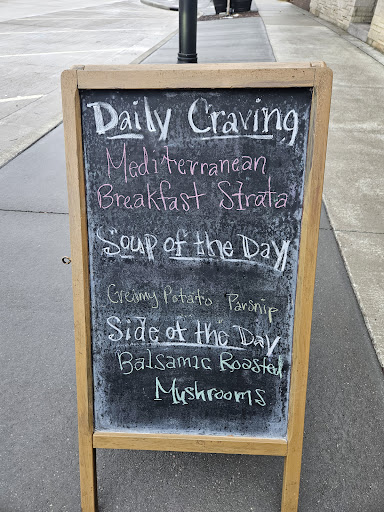 Daily Craving
Mediterranean
Breakfast Strata
Soup of the Day
Creamy Potato Parsnip
Side of the Day
Balsamic Roasted
Myshrooms